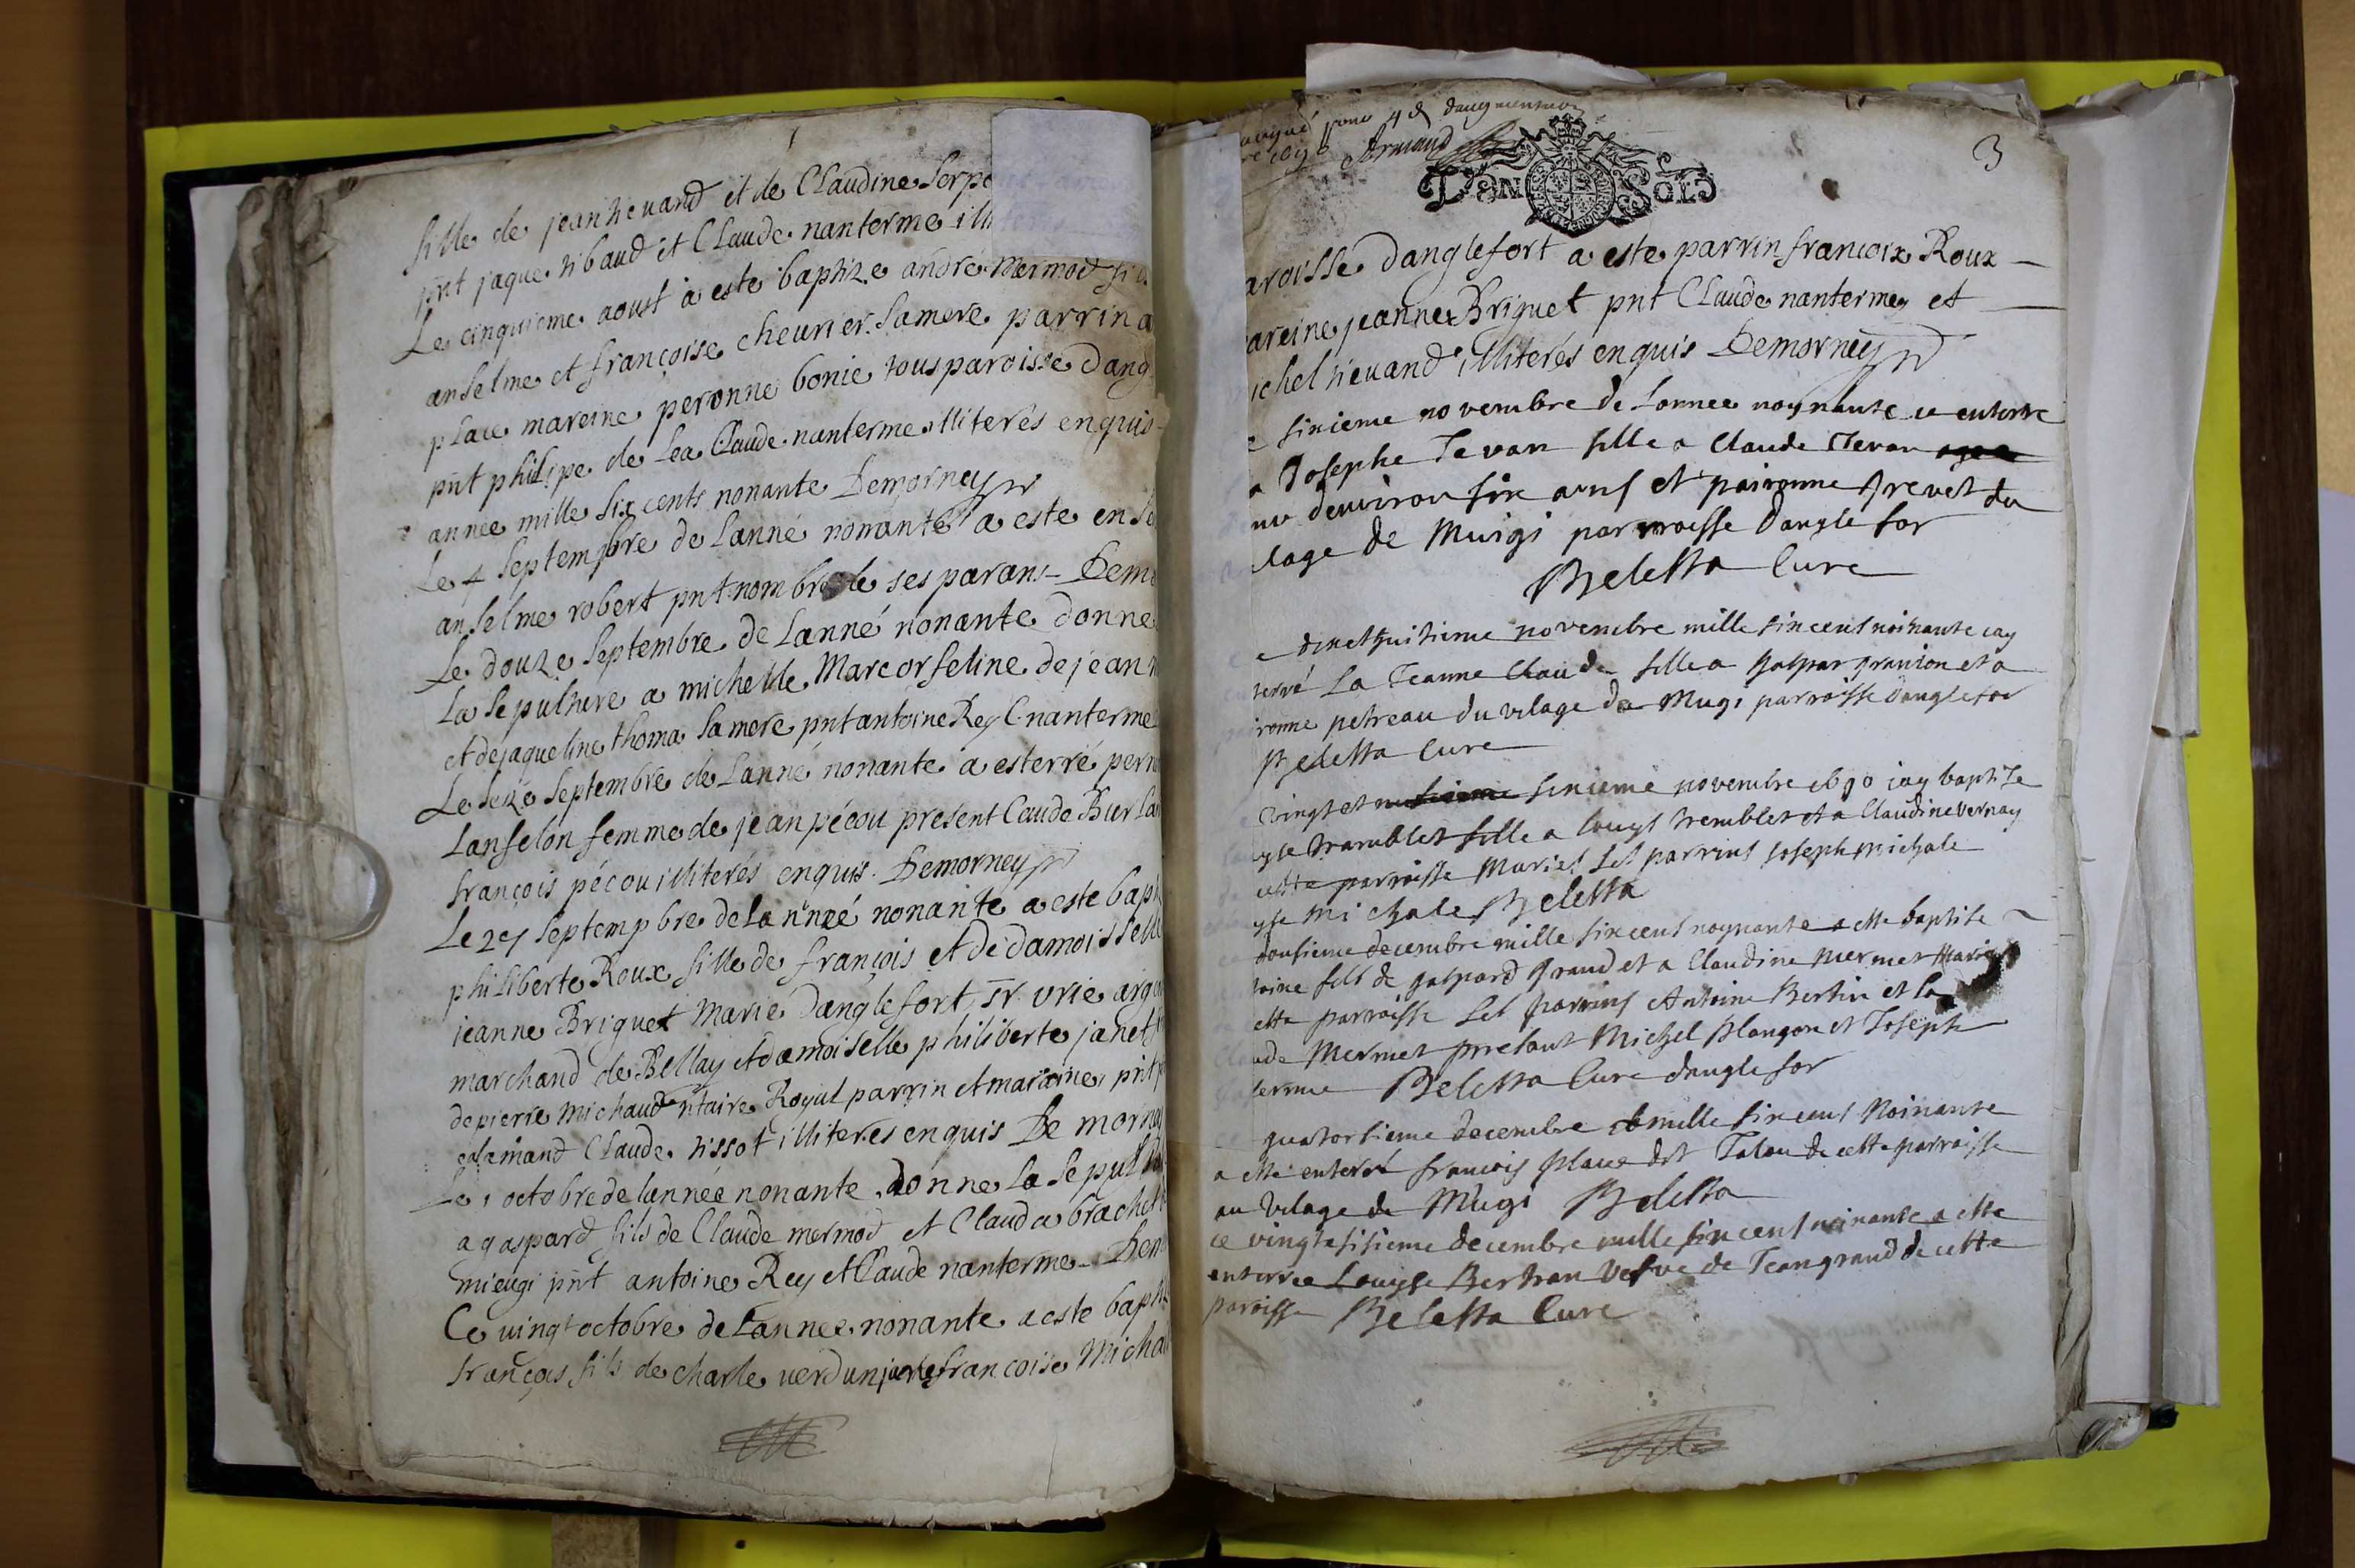 fille de jean hevand et de Claudine Serpo
pnt jaque tibaud et Claude nanterme illi
Le cinquieme aoust a este baptize andré Mermod fils
anselme et françoise chevrier samere parrin a
place mareine peronne bonie tous paroisse Dang
pnt philipe de Lea Claude nanterme illiterés enquis
annee mille six cents nonante Demorney
Le 4 septembre de Lanné nonante a este ense
anselme robert pnt nombre de ses parans Demo
Le douze septembre de Lanné nonante donne
La sepulture a michelle Marcorseline de jean
et de jaqueline thoma sa mere pnt antoine Rey C nanterme
Le seize septembre de Lanné nonante a esterré pern
Lanselon femme de jean pécou present Claude Burla
françois pécou illiterés enquis Demorney
Le 29 septempbre de Lannzé nonante a este bapt
philiberte Roux fille de françois et de damoisselle
jeanne Briquet Marié Danglefort sr vrie argu
marchand de Bellay et damoiselle philiberte janet
de pierre michaud ntaire Royal parrin et maraine pnt
alemand Claude tissot illiteres enquis De morney
Le 1 octobre de lannée nonante donne La sepultu
a gaspard fils de Claude mermod et Clauda brachet
mieugi pnt antoine Rey et Claude nanterme Dem
Ce vingt octobre de Lannee nonante a este bapti
françois fils de charle verdun francoise Micha
pour 4 d daugmentation
Armand
3
DEN SOLD
aroisse Danglefort a este parrin francoix Roux
areine jeanne Briquet pnt Claude nanterme et
ichel hevand illiterés enquis Demorney
e sixieme novembre de Lonnee noynante ie enterre
a Josephe Tevan fille a Claude Tevan
nu denviron six ans et paironne frevet du
lage de Muigi parroisse Dangle for
Beletta Cure
e dixethuitieme novembre mille sixcent noinante iay
terré La Jeanne Claude fille a gaspar granion et a
ronne petreau du vilage de Mugi parroisse danglefor
Beletta Cure
vingt et sixieme novembre 1690 iay baptise
yse tramblet fille a louys tremblet et a Claudine vernay
cette parroisse Mariés Les parrins joseph michale
yse michale Beletta
dousieme decembre mille sixcent noynante a este baptise
toine fils de gaspard grand et a Claudine mermet Mariés
ette parroisse Les parrins Antoine Bertin et la
ude Mermet presant Michel plangon et Joseph
terme Beletta Cure dangle for
quatorsieme decembre mille sixcent Noinante
a este enterré francois place dit Talon de cette parroisse
au vilage de Mugi Beletta
ce vingtesisieme decembre mille sixcent noinante a este
enterree Louyse Bertran vefve de Jean grand de cette
paroisse Beletta Cure